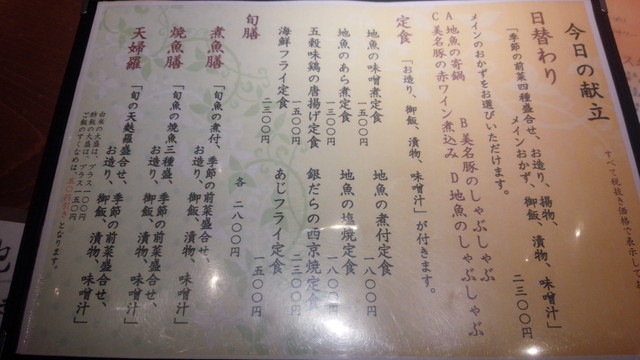 すべて税抜き価格で表示し
今日の献立
日替わり
「季節の前菜四種盛合せ、お造り、揚物、
メインおかず、御飯、漬物、味噌汁」
二三〇〇円
メインのおかずをお選びいただけます。
A 地魚の寄鍋 B 美名豚のしゃぶしゃぶ
C 美名豚の赤ワイン煮込み D 地魚のしゃぶしゃぶ
定食
「お造り、御飯、漬物、味噌汁」が付きます。
地魚の味噌煮定食 一八〇〇円
地魚の煮付定食 一八〇〇円
地魚のあら煮定食 一三〇〇円
地魚の塩焼定食 一八〇〇円
五穀味鶏の唐揚げ定食 一五〇〇円
銀だらの西京焼定食 二三〇〇円
海鮮フライ定食 二三〇〇円
あじフライ定食 一五〇〇円
旬膳
各 二八〇〇円
煮魚膳
「旬魚の煮付、季節の前菜盛合せ、
お造り、御飯、漬物、味噌汁」
焼魚膳
「旬魚の焼魚三種盛、季節の前菜盛合せ、
お造り、御飯、漬物、味噌汁」
天婦羅
「旬の天麩羅盛合せ、季節の前菜盛合せ、
お造り、御飯、漬物、味噌汁」
白米の大盛は、プラス一〇〇円
御飯の大盛は、プラス一五〇円
ご飯のすくなめは、五〇円引きとなります。